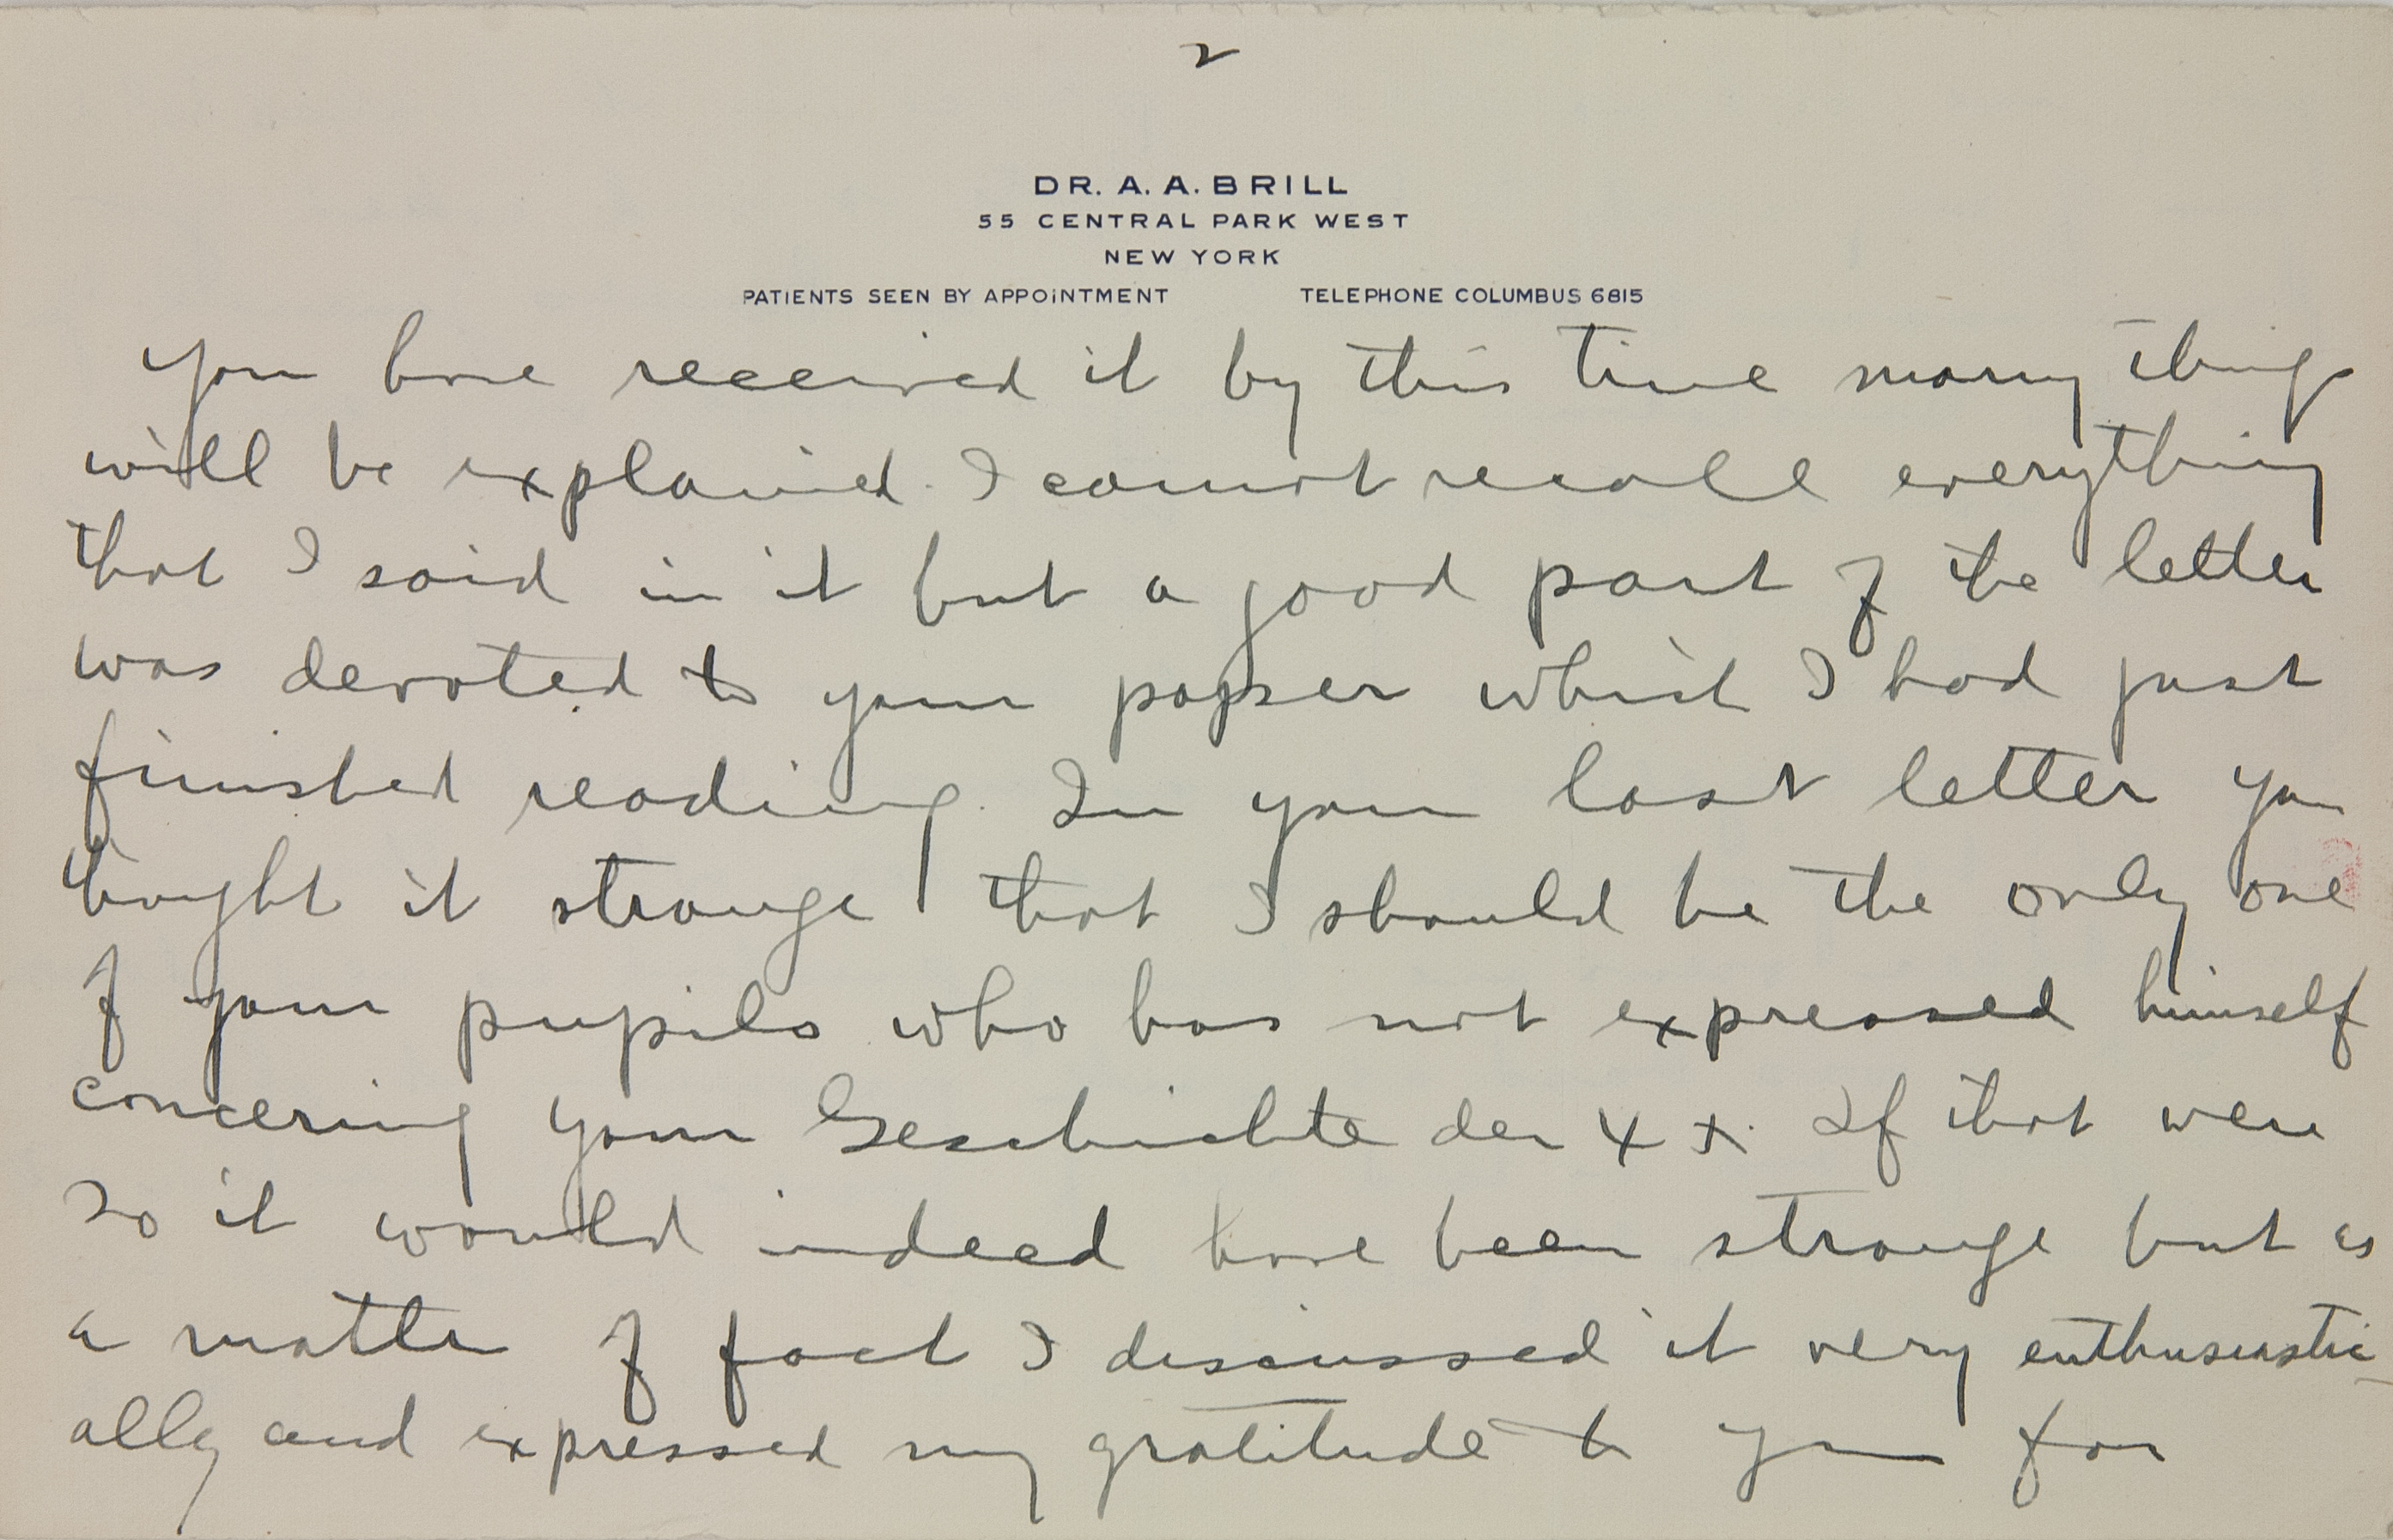 2
DR. A. A. BRILL
55 CENTRAL PARK WEST
NEW YORK
PATIENTS SEEN BY APPOINTMENT TELEPHONE COLUMBUS 6815
you have received it by this time many things
will be explained. I cannot recall everything
that I said in it but a good part of the letter
was devoted to your paper which I had just
finished reading. In your last letter you
thought it strange that I should be the only one
of your pupils who has not expressed himself
concering your Geschichte der 4 x. If that were
so it would indeed have been strange but as
a matter of fact I discussed it very enthusiastic
ally and expressed my gratitude to you for